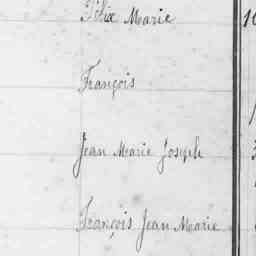 Félix Marie
François
Jean Marie Joseph
François Jean Marie